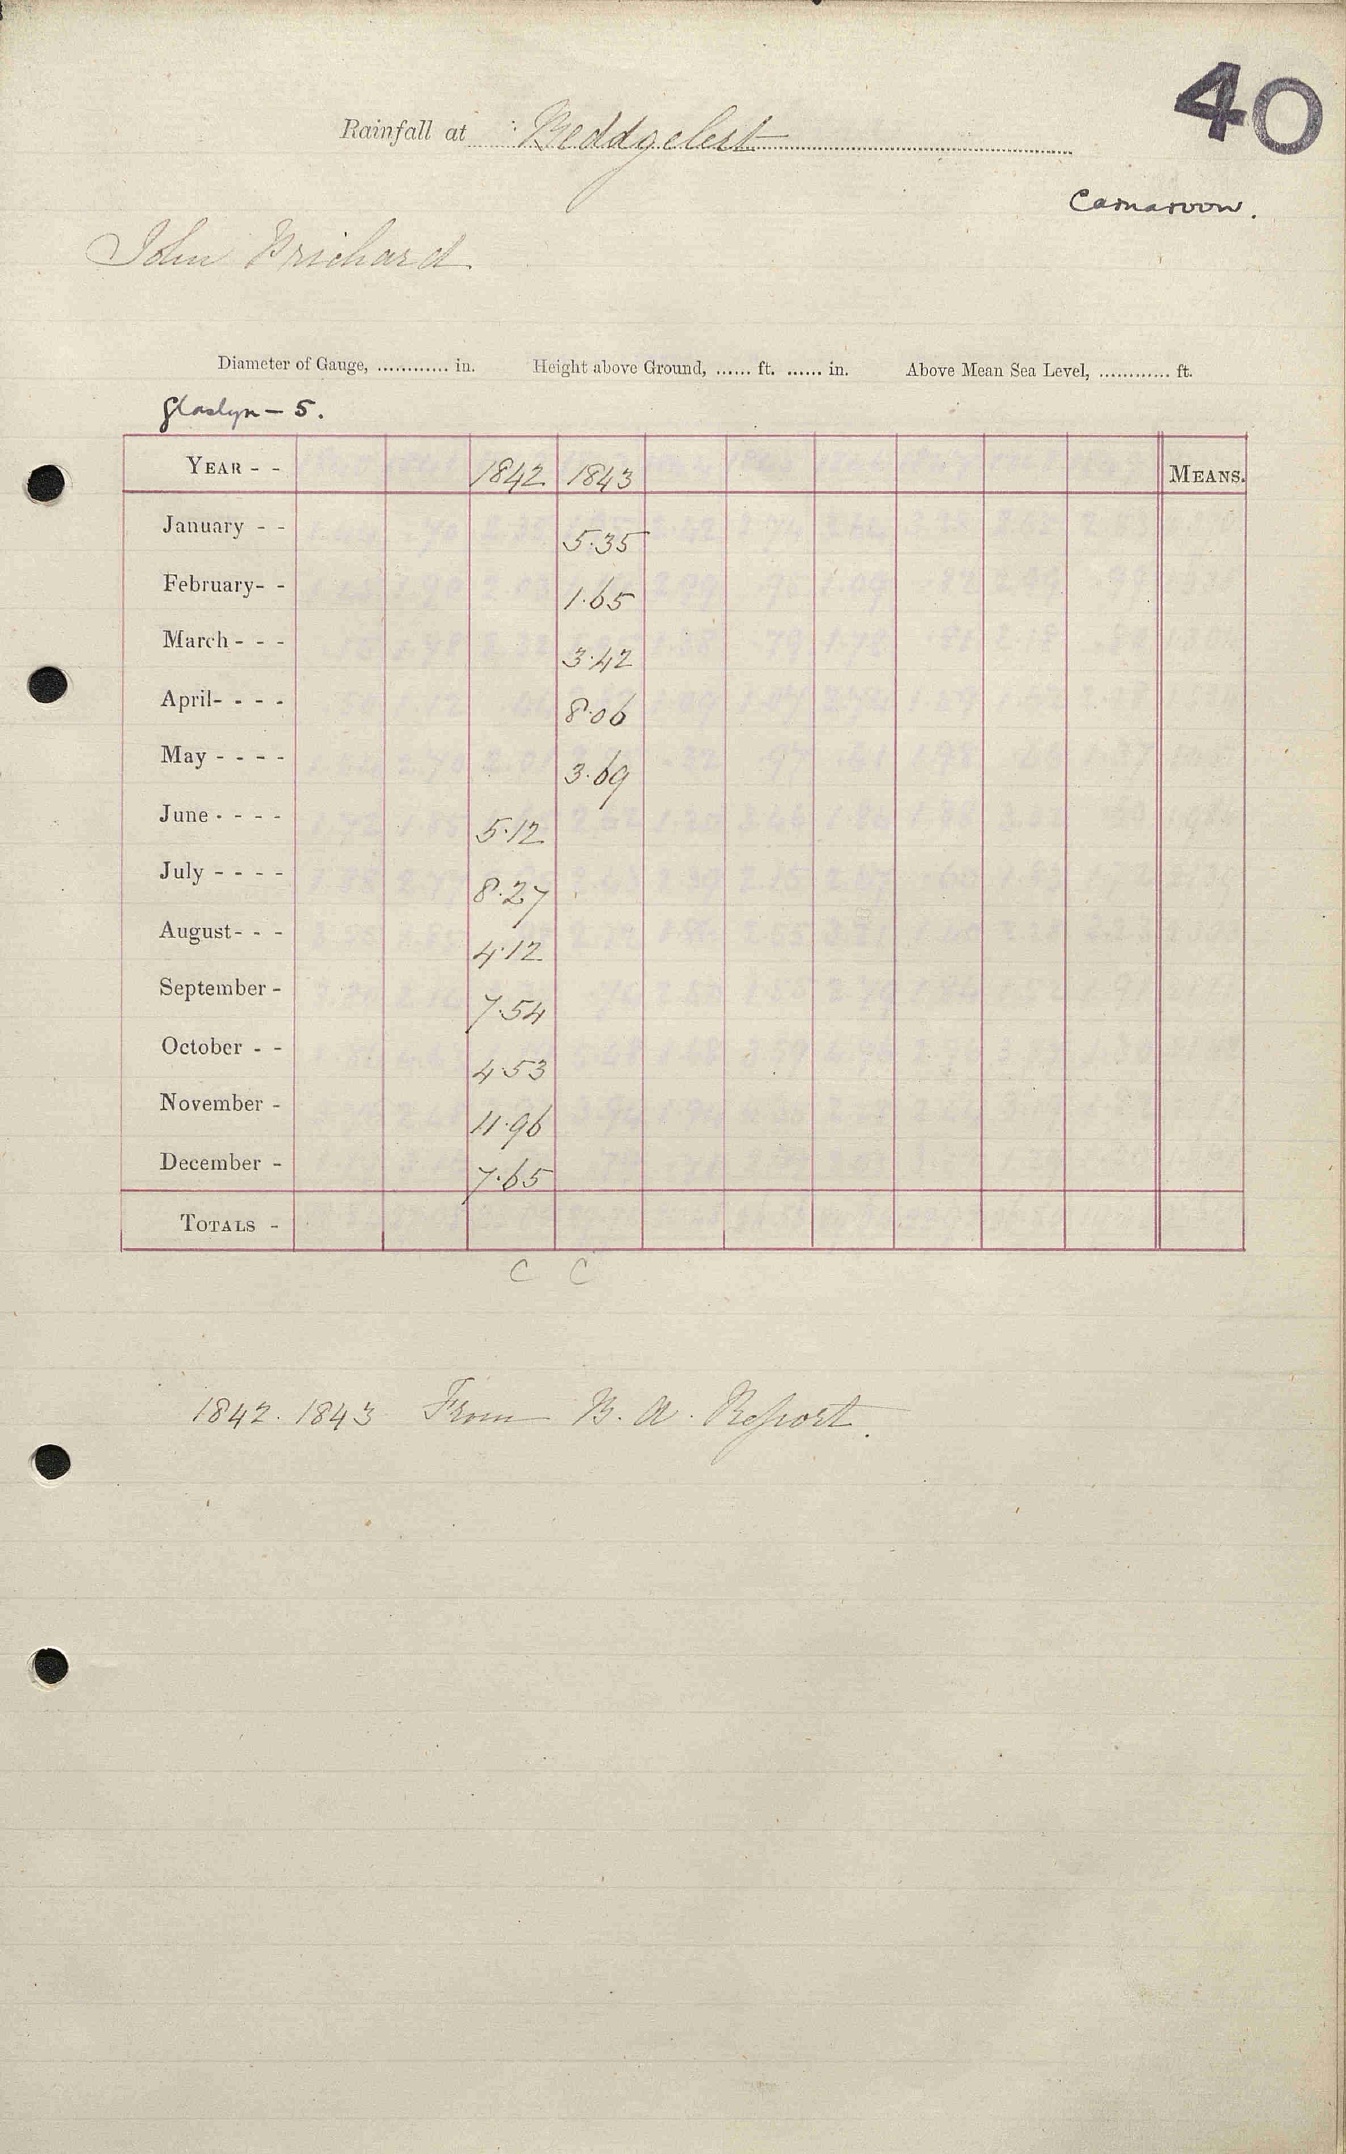 40
Rainfall at Beddgelert
Carnarvon.
John Prichard
Diameter of Gauge, ............ in. Height above Ground, ...... ft. ...... in. Above Mean Sea Level, ............ ft.
Glaslyn – 5.
YEAR - - 1842 1843 MEANS.
January - - 5.35
February - - 1.65
March - - - 3.42
April - - - - 8.06
May - - - - 3.69
June - - - - 5.12
July - - - - 8.27
August - - - 4.12
September - 7.54
October - - 4.53
November - 11.96
December - 7.65
TOTALS -
C C
1842. 1843 From B. A. Report.